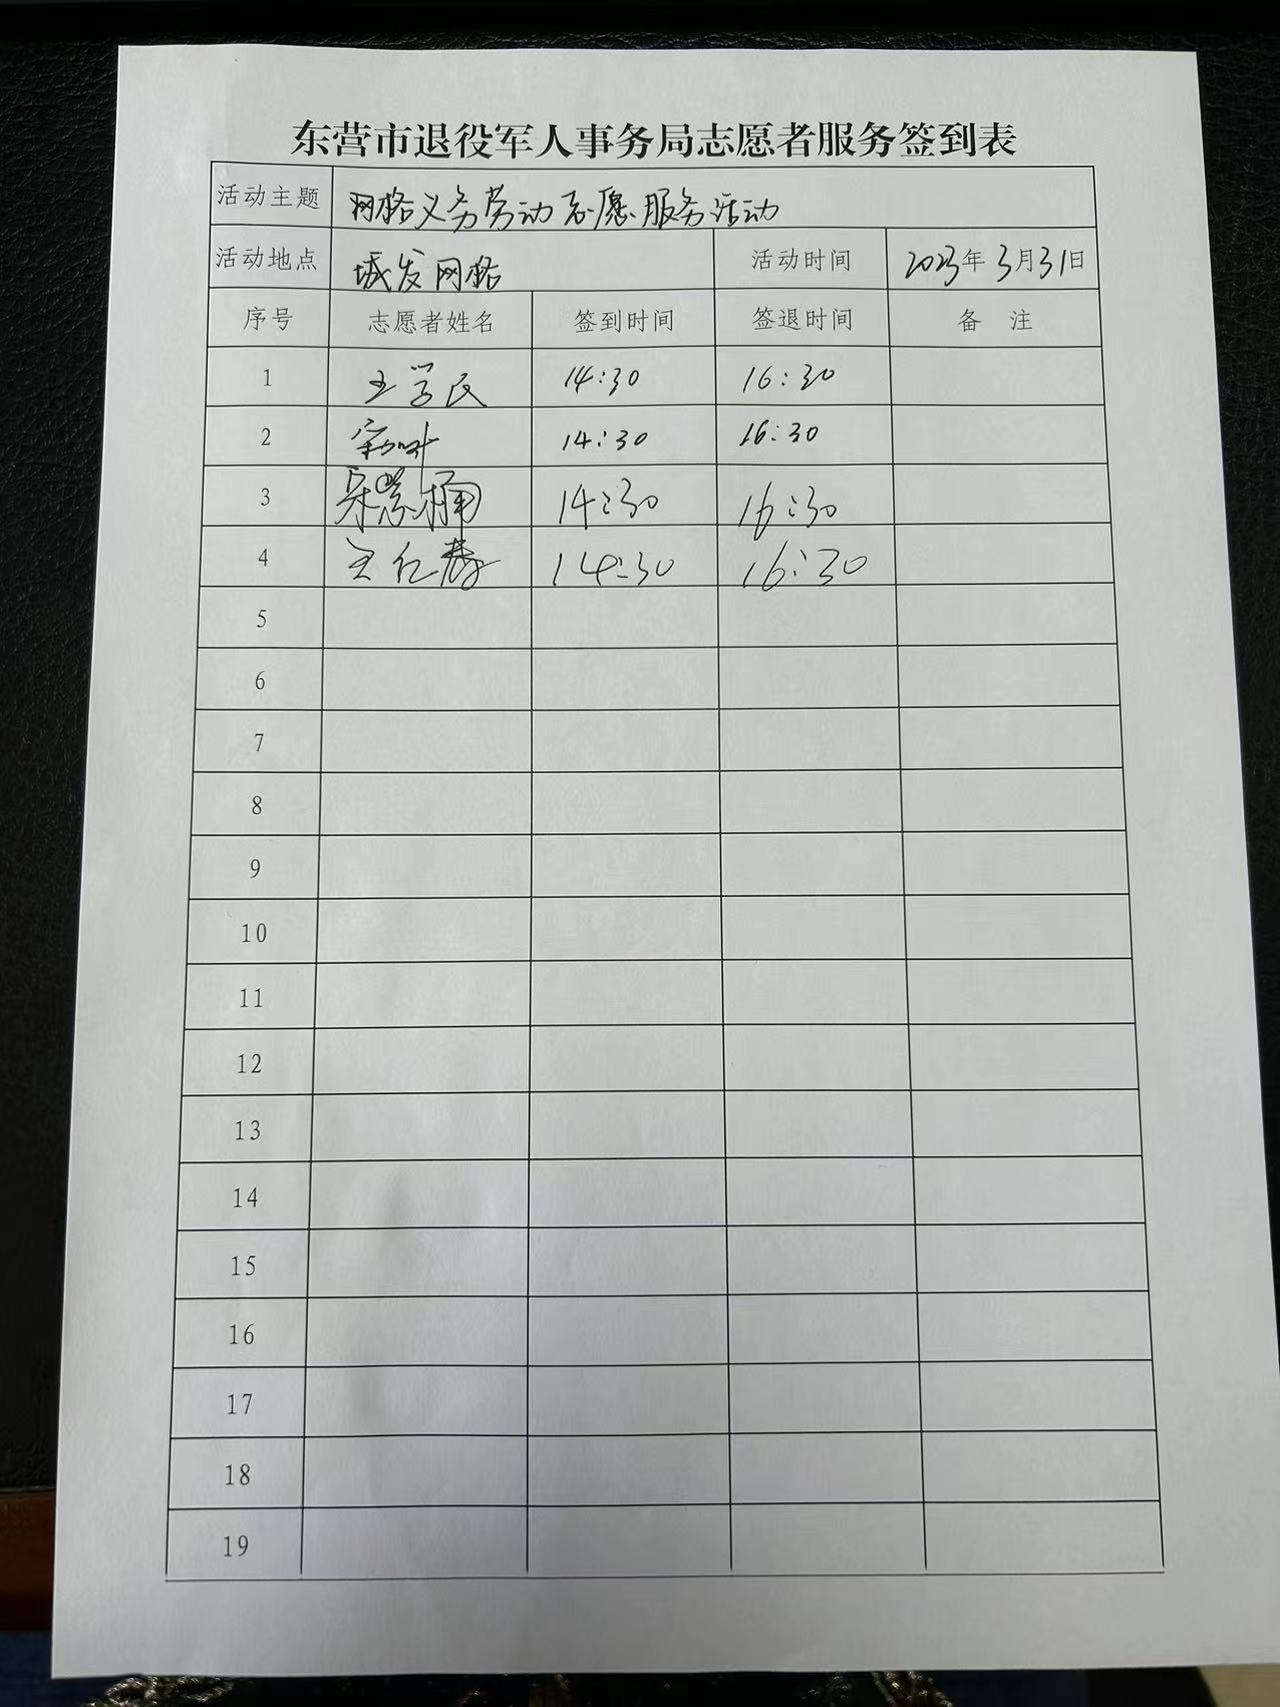 东营市退役军人事务局志愿者服务签到表
活动主题 网格义务劳动志愿服务活动
活动地点 城发网格 活动时间 2023年3月31日
序号 志愿者姓名 签到时间 签退时间 备 注
1 王学民 14:30 16:30
2 14:30 16:30
3 14:30 16:30
4 王红春 14:30 16:30
5
6
7
8
9
10
11
12
13
14
15
16
17
18
19